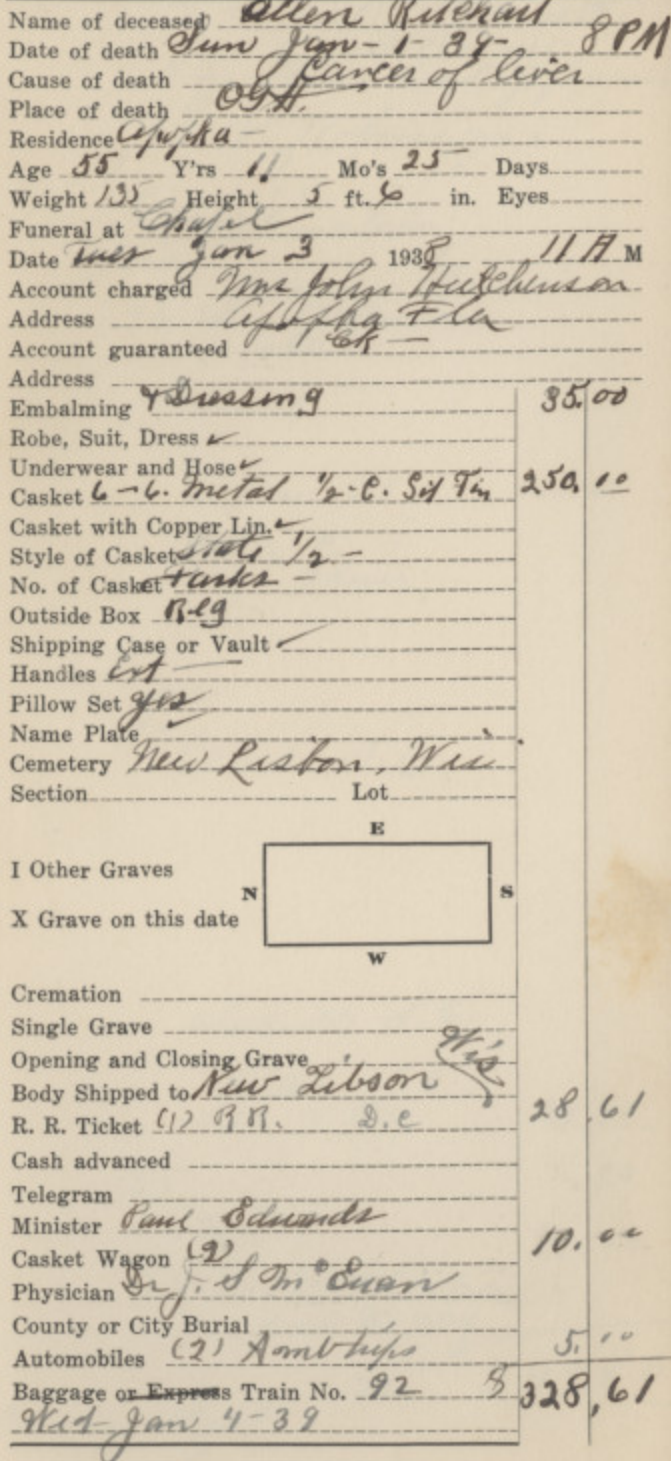 Name of deceased Allen Ritchart
Date of death Sun Jan-1-39- 8 PM
Cause of death Cancer of liver
Place of death OGH.
Residence Apopka
Age 55 Y'rs 11 Mo's 25 Days
Weight 135 Height 5 ft. 6 in. Eyes
Funeral at Chapel
Date Tues Jan 3 1939 11 A M
Account charged Mrs John Hutchenson
Address Apopka Fla
Account guaranteed
Address
Embalming & Dressing 35.00
Robe, Suit, Dress ✓
Underwear and Hose ✓
Casket 6-6. Metal 1/2-C. Sil Tin 250.00
Casket with Copper Lin. ✓
Style of Casket State 1/2 -
No. of Casket
Outside Box Reg
Shipping Case or Vault ✓
Handles Ext
Pillow Set yes
Name Plate ✓
Cemetery New Lisbon, Wis
Section Lot
E
I Other Graves
N S
X Grave on this date
W
Cremation
Single Grave
Opening and Closing Grave
Body Shipped to New Libson Wis
R. R. Ticket (1) RR. D.C 28.61
Cash advanced
Telegram
Minister Paul Edwards
Casket Wagon (2) 10.00
Physician Dr J. S McEwan
County or City Burial
Automobiles (2) Ambtrips 5.00
Baggage or Express Train No. 92 8 328.61
Wed Jan 4-39